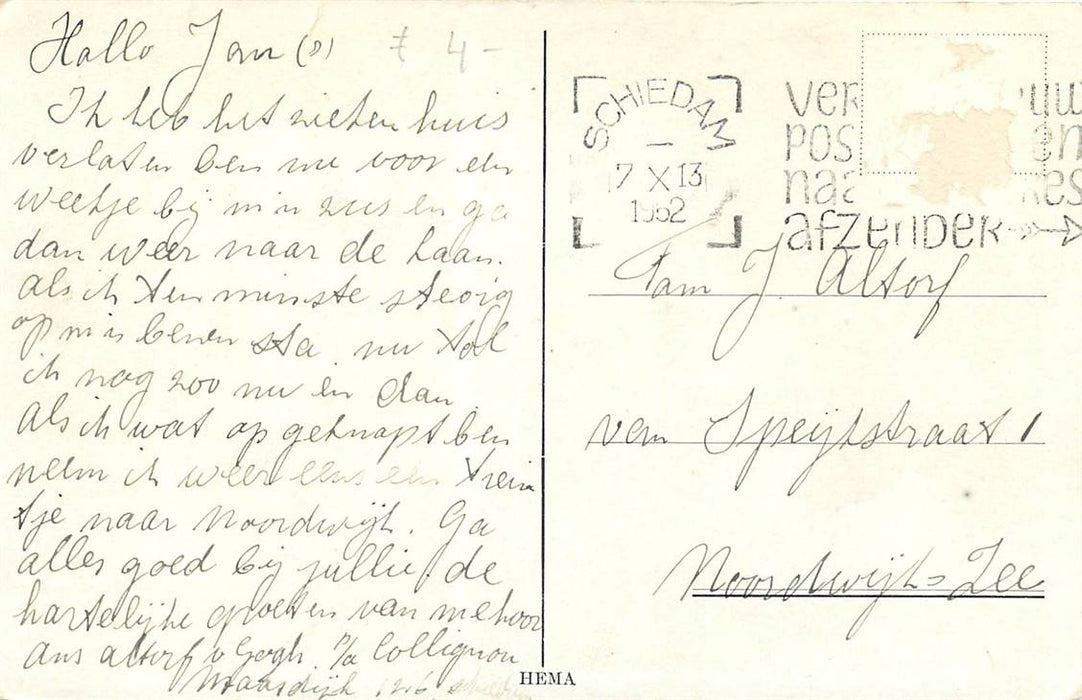 Hallo Jan (8) 4 -
Ik heb het zieken huis
verlaten ben nu voor een
weekje bij m'n zus en ga
dan weer naar de Laan.
als ik ten minste stevig
op m'n benen sta nu tol
ik nog zoo nu en dan
als ik wat op geknapt ben
neem ik weer eens een trein
tje naar Noordwijk. Ga
alles goed bij jullie, de
hartelijke groeten van mehoor
Ans Altorf v Gogh. P/a Collignon
Maasdijk
SCHIEDAM
17 X 13
1962
afzender
Fam J. Altorf
van Speijkstraat 1
Noordwijk = Zee
HEMA